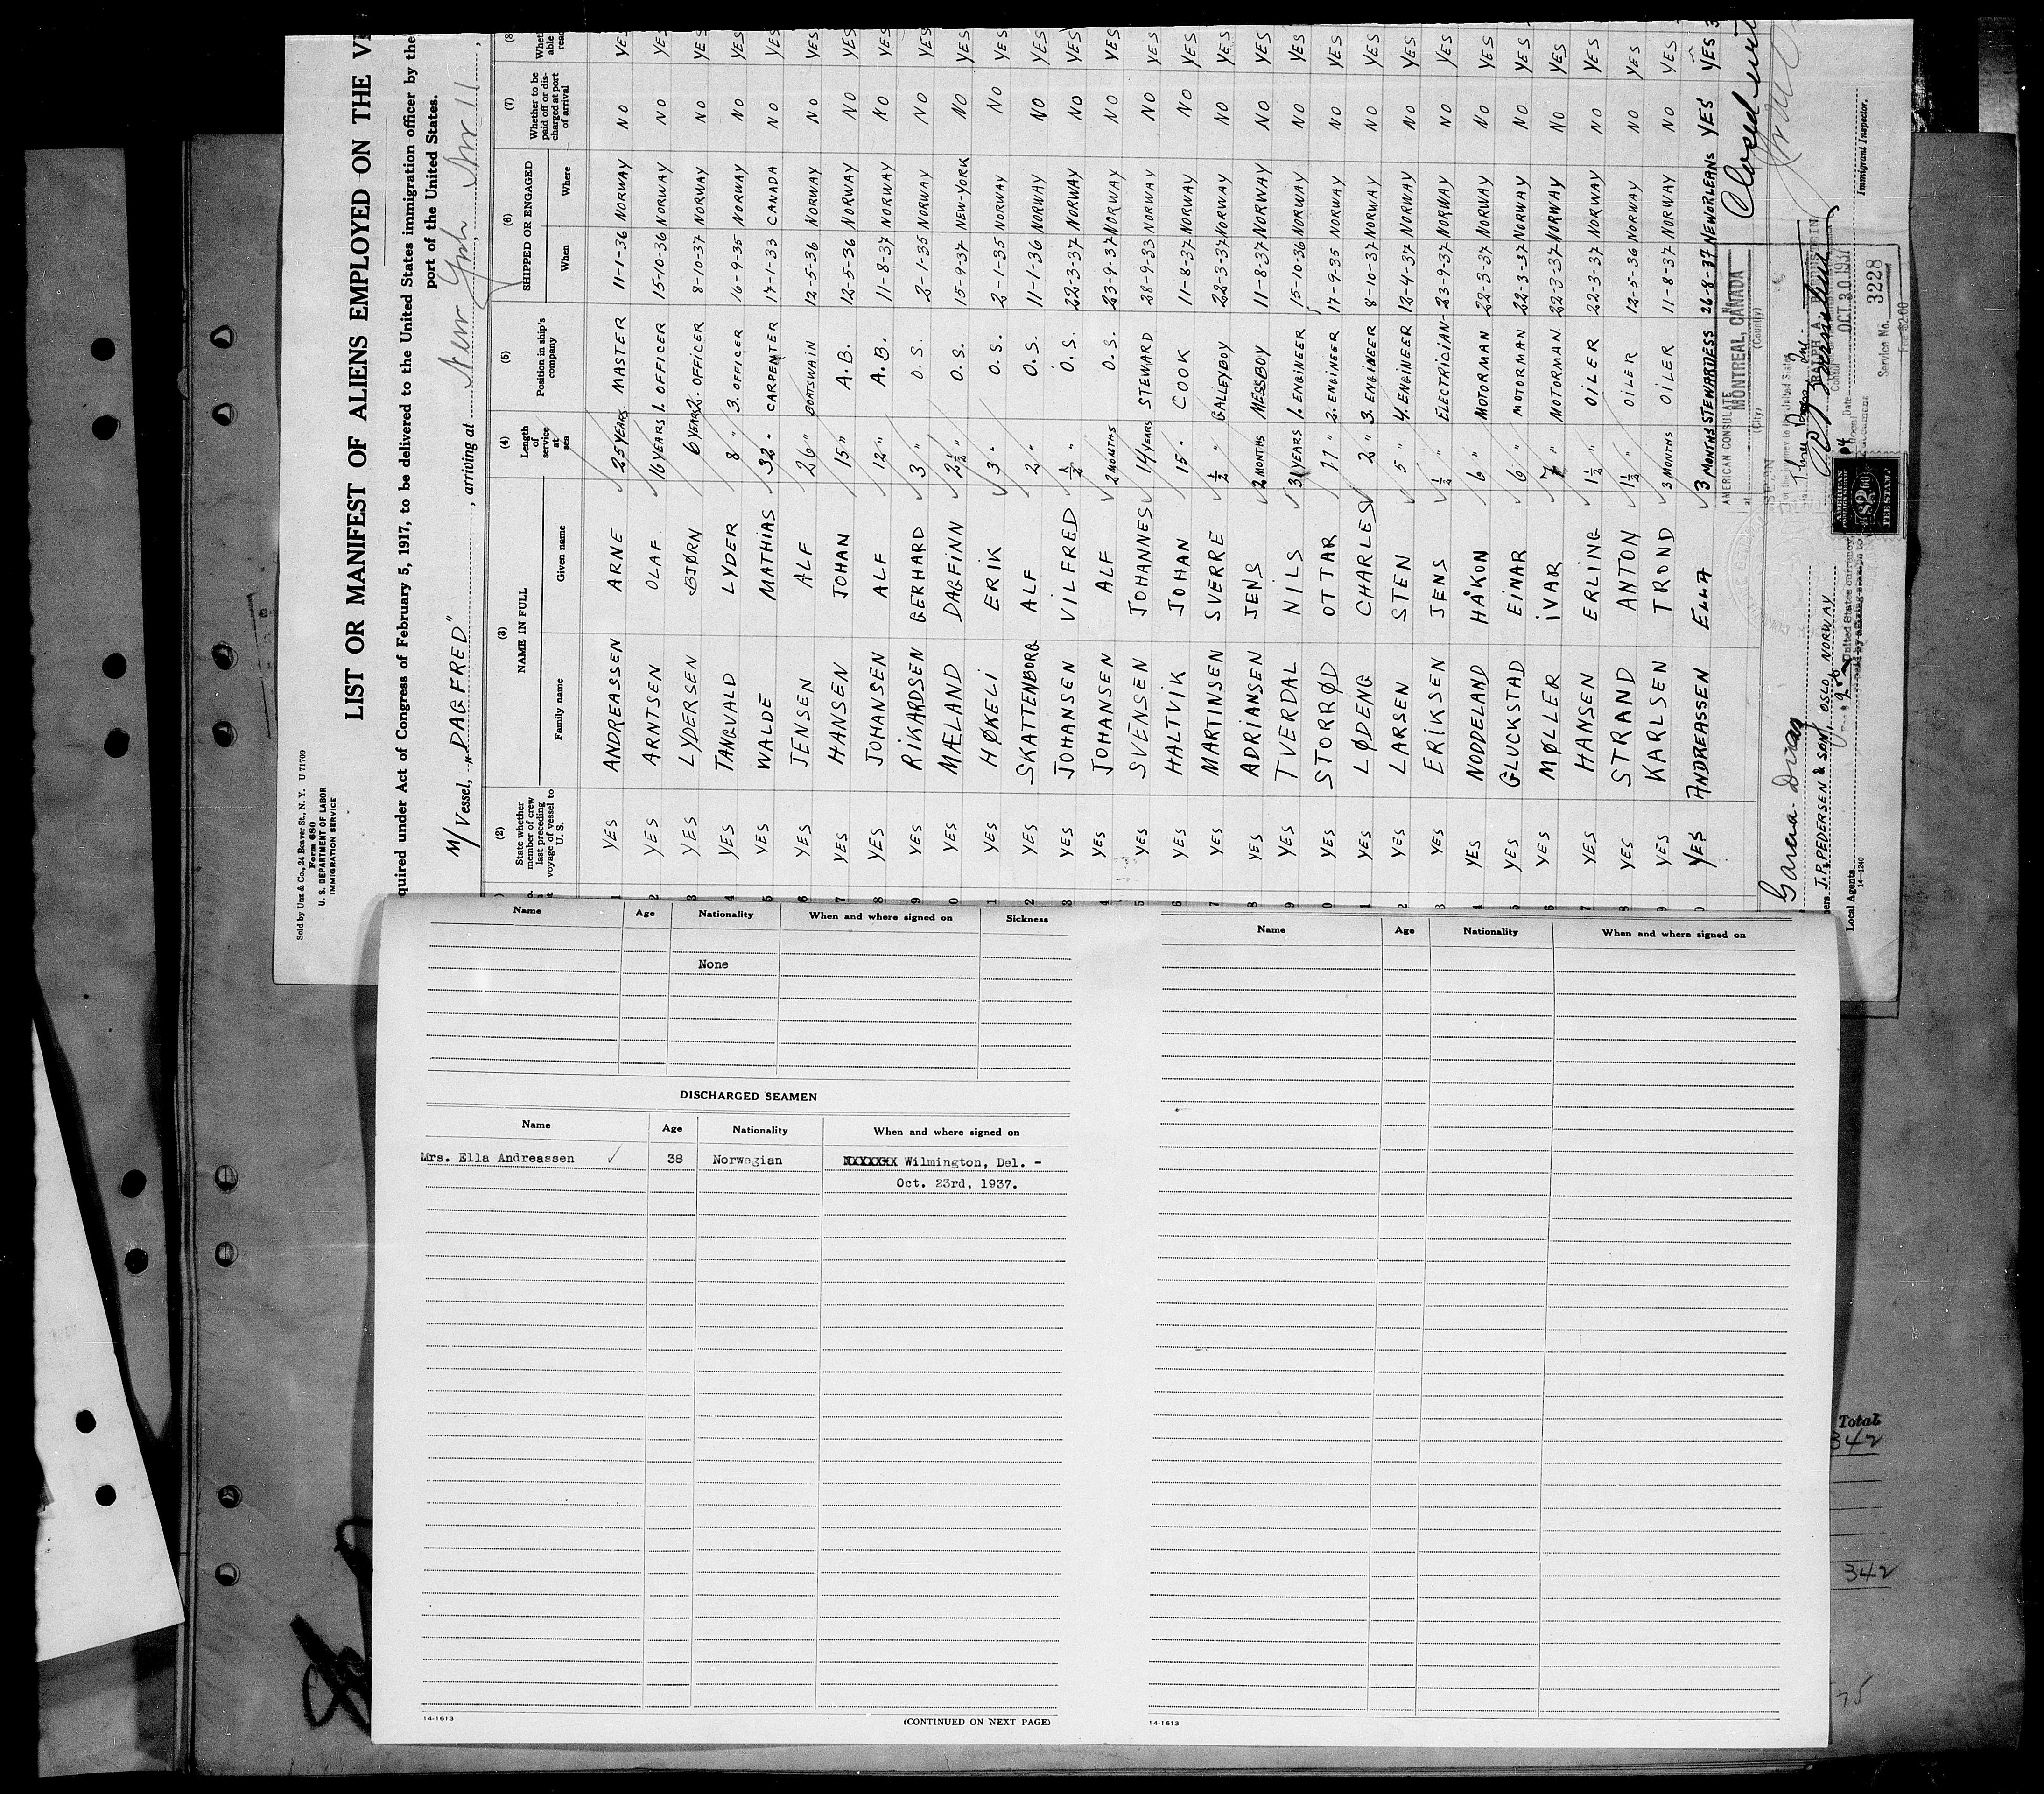 Sold by Unz & Co., 24 Beaver St., N. Y. U 71709
Form 680
U. S. DEPARTMENT OF LABOR
IMMIGRATION SERVICE
LIST OR MANIFEST OF ALIENS EMPLOYED ON THE
quired under Act of Congress of February 5, 1917, to be delivered to the United States immigration officer by the
port of the United States.
M/Vessel, "DAGFRED", arriving at New York, Nov 11,
(2) State whether member of crew last preceding voyage of vessel to U. S. (3) NAME IN FULL Family name Given name (4) Length of service at sea (5) Position in ship's company (6) SHIPPED OR ENGAGED When Where (7) Whether to be paid off or discharged at port of arrival
1 YES ANDREASSEN ARNE 25 YEARS MASTER 11-1-36 NORWAY NO YES
2 YES ARNTSEN OLAF 16 YEARS 1. OFFICER 15-10-36 NORWAY NO YES
3 YES LYDERSEN BJØRN 6 YEARS 2. OFFICER 8-10-37 NORWAY NO YES
4 YES TANGVALD LYDER 8 " 3. OFFICER 16-9-35 NORWAY NO YES
5 YES WALDE MATHIAS 32 " CARPENTER 17-1-33 CANADA NO YES
6 YES JENSEN ALF 26 " BOATSWAIN 12-5-36 NORWAY NO YES
7 YES HANSEN JOHAN 15 " A.B. 12-5-36 NORWAY NO YES
8 YES JOHANSEN ALF 12 " A.B. 11-8-37 NORWAY NO YES
9 YES RIKARDSEN GERHARD 3 " O.S. 2-1-35 NORWAY NO YES
0 YES MÆLAND DAGFINN 2½ " O.S. 15-9-37 NEW-YORK NO YES
1 YES HØKELI ERIK 3 " O.S. 2-1-35 NORWAY NO YES
2 YES SKATTENBORG ALF 2 " O.S. 11-1-36 NORWAY NO YES
3 YES JOHANSEN VILFRED ½ " O.S. 22-3-37 NORWAY NO YES
4 YES JOHANSEN ALF 2 MONTHS O.S. 23-9-37 NORWAY NO YES
5 YES SVENSEN JOHANNES 14 YEARS STEWARD 28-9-33 NORWAY NO YES
6 YES HALTVIK JOHAN 15 " COOK 11-8-37 NORWAY NO YES
7 YES MARTINSEN SVERRE ½ " GALLEYBOY 22-3-37 NORWAY NO YES
8 YES ADRIANSEN JENS 2 MONTHS MESSBOY 11-8-37 NORWAY NO YES
9 YES TVERDAL NILS 31 YEARS 1. ENGINEER 15-10-36 NORWAY NO YES
0 YES STORRØD OTTAR 11 " 2. ENGINEER 17-9-35 NORWAY NO YES
1 YES LØDENG CHARLES 2 " 3. ENGINEER 8-10-37 NORWAY NO YES
2 YES LARSEN STEN 5 " 4. ENGINEER 12-4-37 NORWAY NO YES
3 YES ERIKSEN JENS ½ " ELECTRICIAN 23-9-37 NORWAY NO YES
4 YES NODDELAND HÅKON 6 " MOTORMAN 22-3-37 NORWAY NO YES
5 YES GLUCKSTAD EINAR 6 " MOTORMAN 22-3-37 NORWAY NO YES
6 YES MØLLER IVAR 7 " MOTORMAN 22-3-37 NORWAY NO YES
7 YES HANSEN ERLING 1½ " OILER 22-3-37 NORWAY NO YES
8 YES STRAND ANTON 1½ " OILER 12-5-36 NORWAY NO YES
9 YES KARLSEN TROND 3 MONTHS OILER 11-8-37 NORWAY NO YES
0 YES ANDREASSEN ELLA 3 MONTHS STEWARDESS 26-8-37 NEW ORLEANS YES YES
AMERICAN CONSULATE
MONTREAL, CANADA
(City) (Country)
Closed
SEEN
OCT 30 1937
Service No. 3228
Fee $2.00
AMERICAN $2.00 FEE STAMP
J.P. PEDERSEN & SON, OSLO, NORWAY
Local Agents
14-1240
Immigrant Inspector.
Name Age Nationality When and where signed on Sickness
None
DISCHARGED SEAMEN
Name Age Nationality When and where signed on
Mrs. Ella Andreassen ✓ 38 Norwegian Wilmington, Del. -
Oct. 23rd, 1937.
14-1613
(CONTINUED ON NEXT PAGE)
Name Age Nationality When and where signed on
14-1613
Total
342
342
75